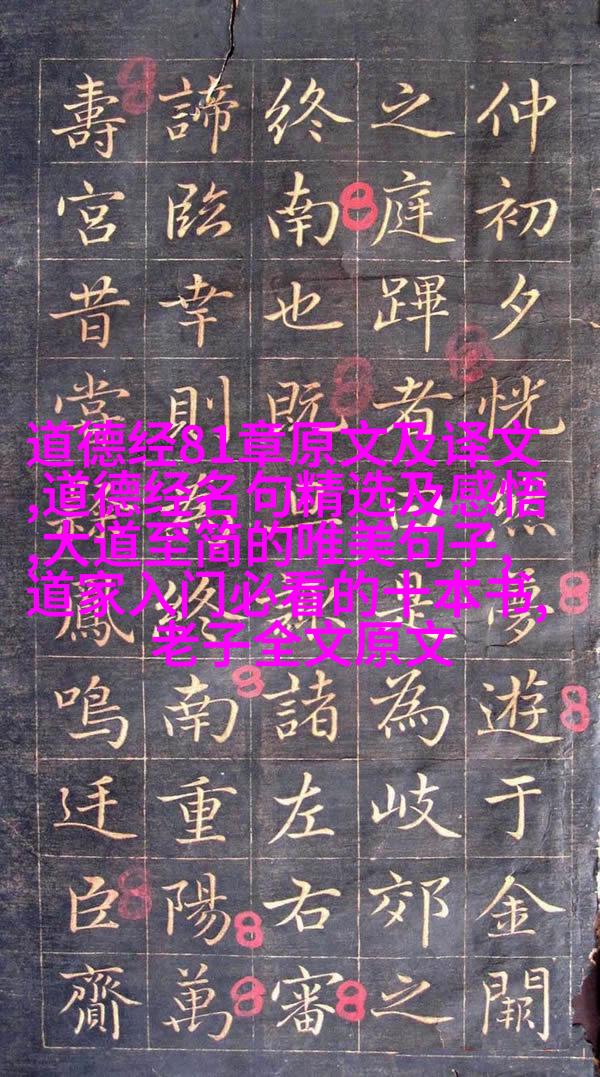 仲初夕恍然夢遊于金闕
之庭蹕者是為岐郊之
終南也既諸左右審
諦臨幸則終南重陽萬
壽宮昔鳳鳴廷臣齎
道德经81章原文及译文
,道德经名句精选及感悟
,大道至简的唯美句子,
道家入门必看的十本书,
老子全文原文